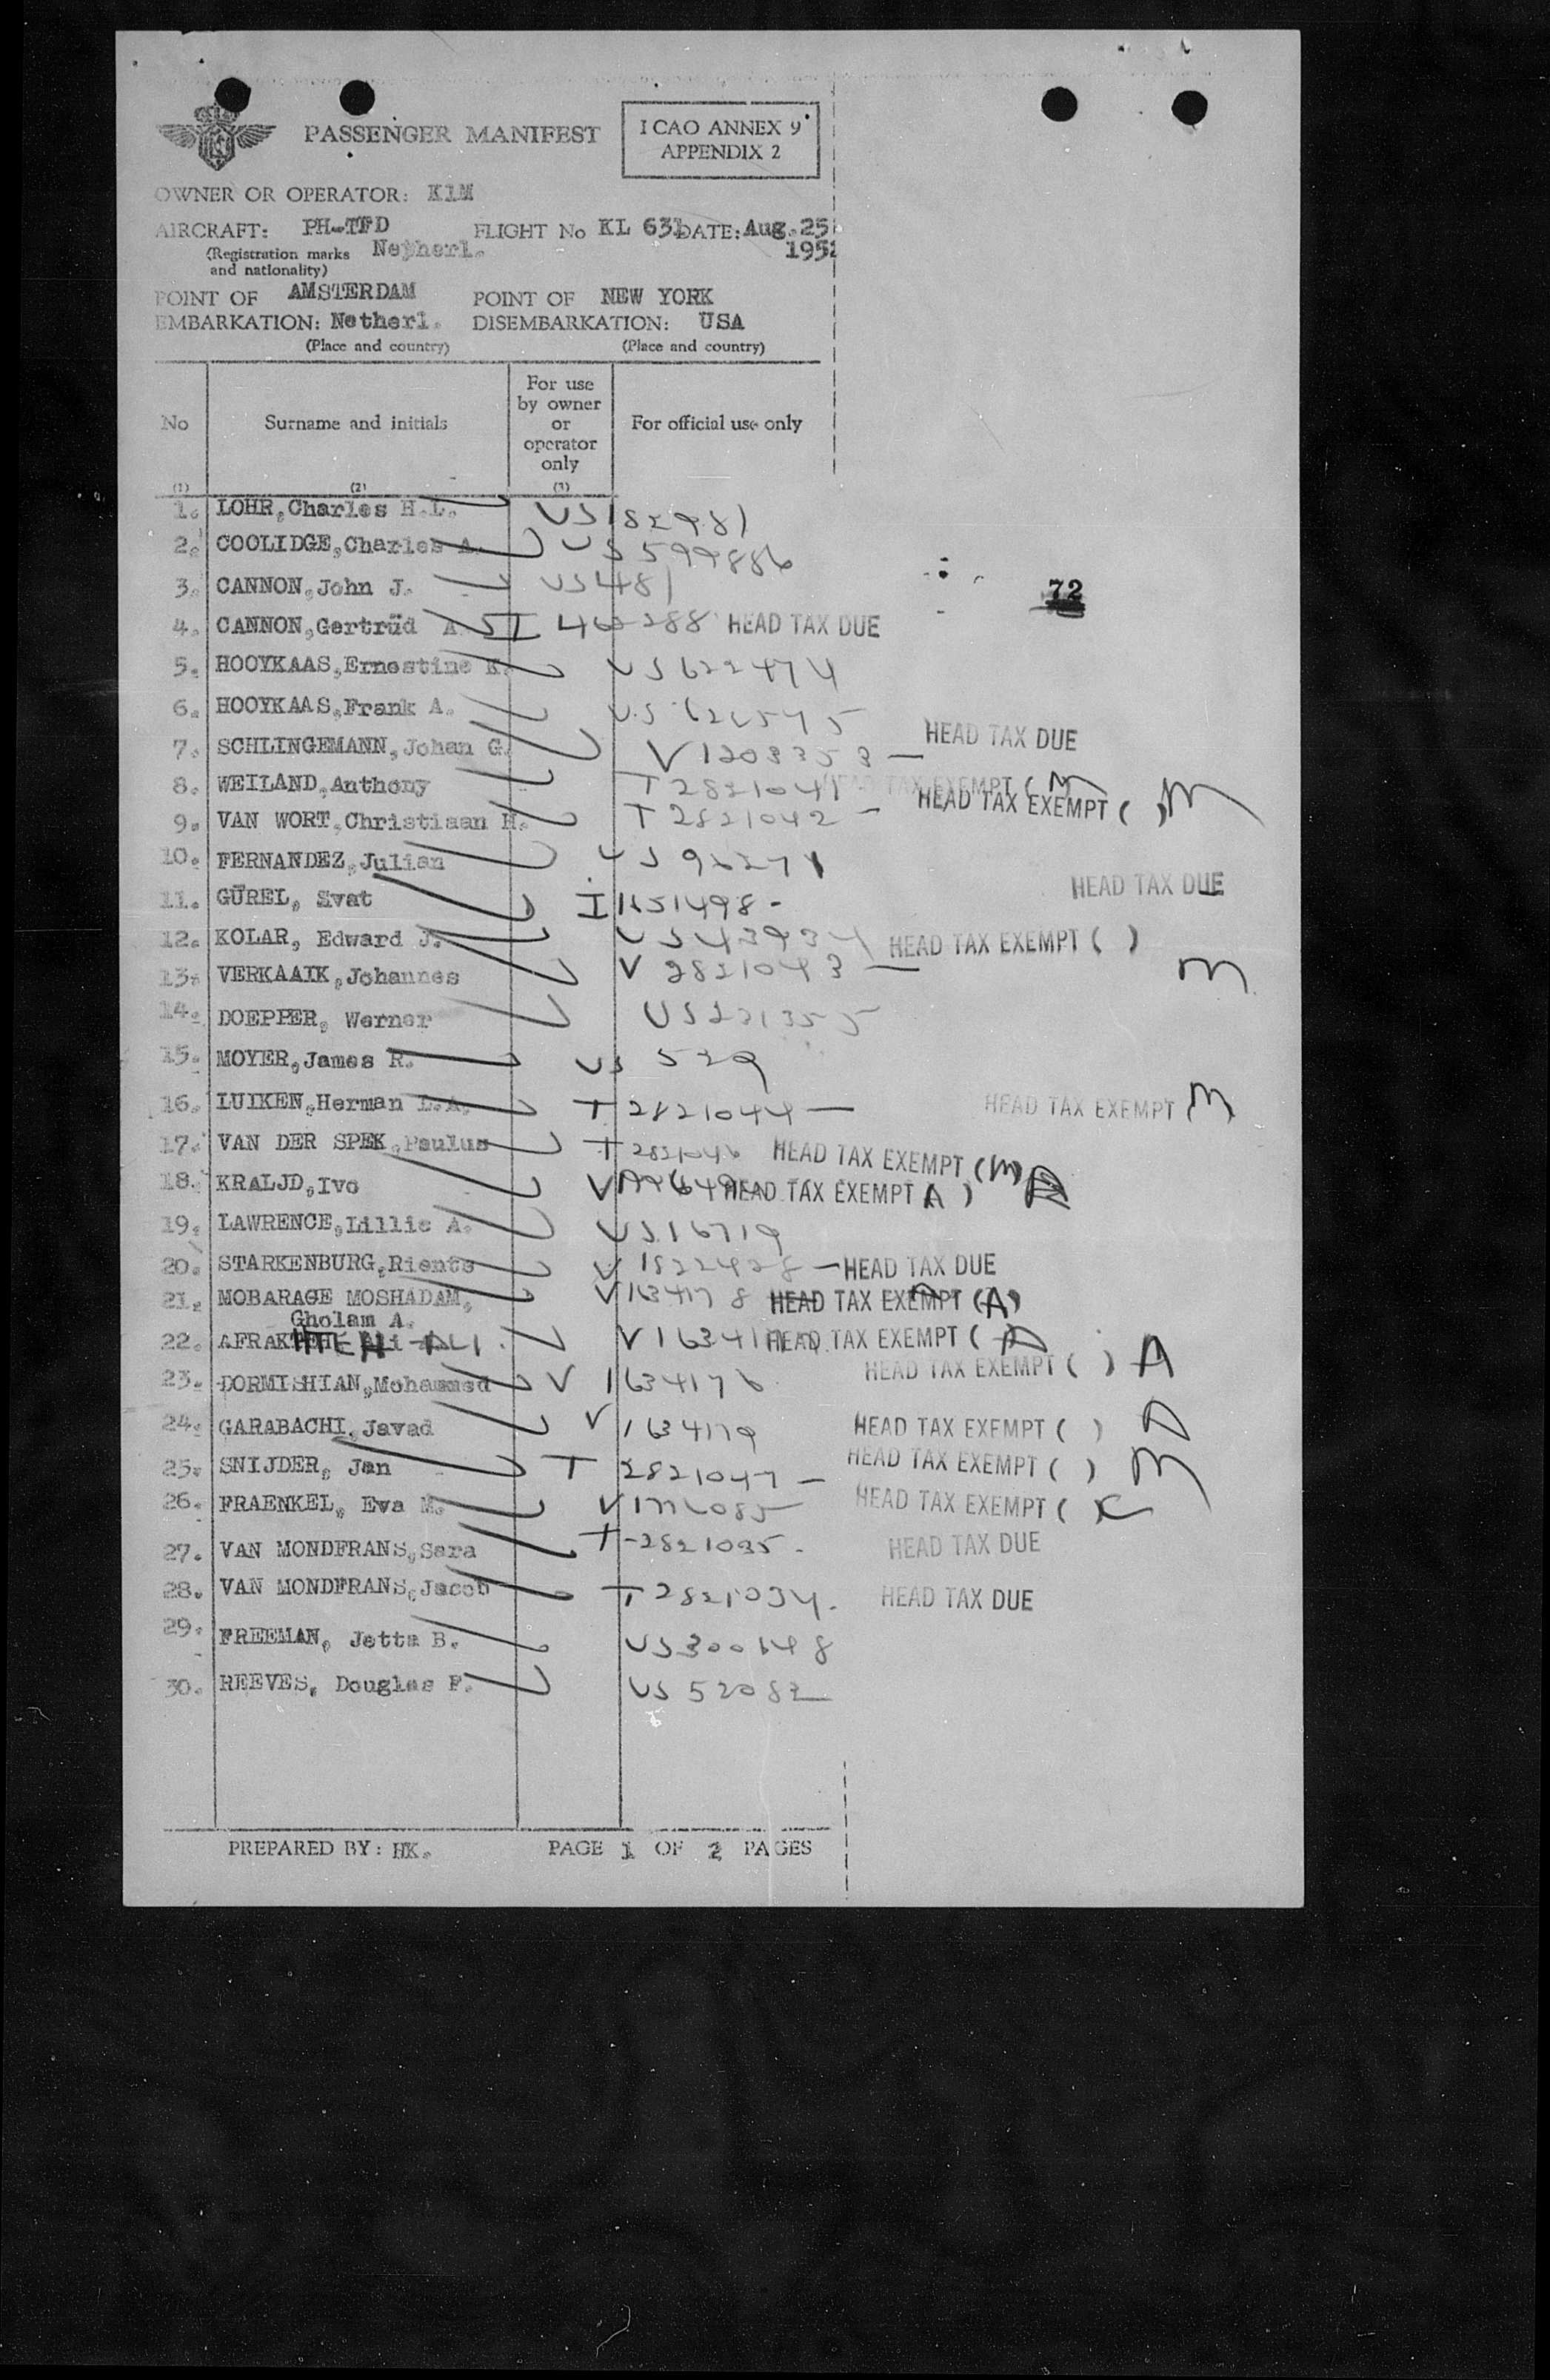 PASSENGER MANIFEST
ICAO ANNEX 9
APPENDIX 2
OWNER OR OPERATOR: KLM
AIRCRAFT: PH-TFD FLIGHT No KL 631 DATE: Aug. 25
(Registration marks and nationality) Netherl. 1952
POINT OF EMBARKATION: AMSTERDAM Netherl. POINT OF DISEMBARKATION: NEW YORK USA
(Place and country) (Place and country)
No Surname and initials For use by owner or operator only For official use only
(1) (2) (3)
1. LOHR, Charles H.L. US 182981
2. COOLIDGE, Charles A. US 599886
3. CANNON, John J. US 481
72
4. CANNON, Gertrüd A. HEAD TAX DUE
5. HOOYKAAS, Ernestine K. US 622474
6. HOOYKAAS, Frank A.
7. SCHLINGEMANN, Johan G. V 1203353 — HEAD TAX DUE
8. WEILAND, Anthony T 2821041 HEAD TAX EXEMPT (M
9. VAN WORT, Christiaan H. T 2821042 — HEAD TAX EXEMPT ( ) M
10. FERNANDEZ, Julian
11. GÜREL, Svat HEAD TAX DUE
12. KOLAR, Edward J. US 43934 HEAD TAX EXEMPT ( )
13. VERKAAIK, Johannes V 2821043 — M
14. DOEPPER, Werner US 221355
15. MOYER, James R. US 529
16. LUIKEN, Herman L.A. T 2821044 — HEAD TAX EXEMPT M
17. VAN DER SPEK, Paulus T 2821046 HEAD TAX EXEMPT (M)
18. KRALJD, Ivo HEAD TAX EXEMPT A )
19. LAWRENCE, Lillie A. US 16719
20. STARKENBURG, Rients V 1822428 — HEAD TAX DUE
21. MOBARAGE MOSHADAM, V 1634178 HEAD TAX EXEMPT (A)
Gholam A.
22. HEAD TAX EXEMPT ( A
23. DORMISHIAN, Mohammed V 1634176 HEAD TAX EXEMPT ( ) A
24. GARABACHI, Javad V 1634179 HEAD TAX EXEMPT ( ) A
25. SNIJDER, Jan T 2821047 — HEAD TAX EXEMPT ( ) M
26. FRAENKEL, Eva M. V 1776085 HEAD TAX EXEMPT (
27. VAN MONDFRANS, Sara T-2821035. HEAD TAX DUE
28. VAN MONDFRANS, Jacob T 2821034. HEAD TAX DUE
29. FREEMAN, Jetta B. US 300648
30. REEVES, Douglas F. US 52082
PREPARED BY: HK. PAGE 1 OF 2 PAGES